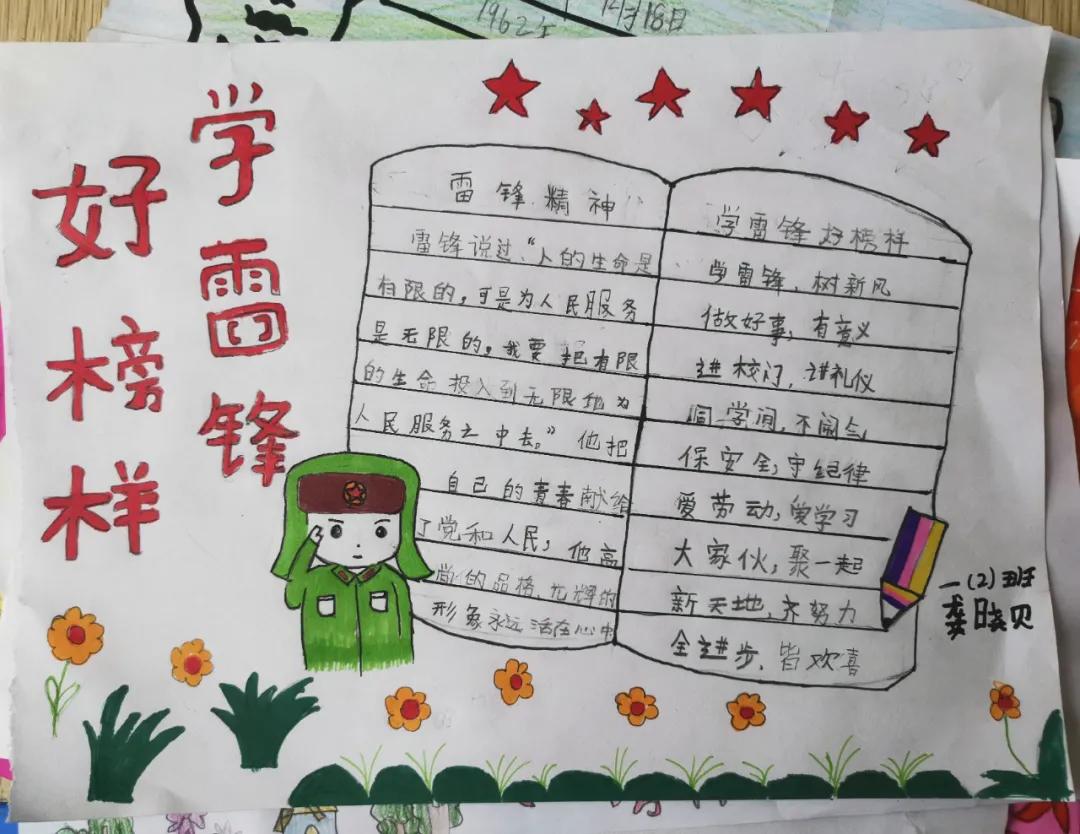 1962年
12月18日
学雷锋
好榜样
雷锋精神
雷锋说过:“人的生命是
有限的,可是为人民服务
是无限的。我要把有限
的生命投入到无限地为
人民服务之中去。”他把
自己的青春献给
了党和人民,他高
尚的品格,光辉的
形象永远活在心中
学雷锋好榜样
学雷锋、树新风
做好事,有意义
进校门,讲礼仪
同学间,不闹气
保安全,守纪律
爱劳动,爱学习
大家伙,聚一起
新天地,齐努力
全进步、皆欢喜
一(2)班
龚晓贝